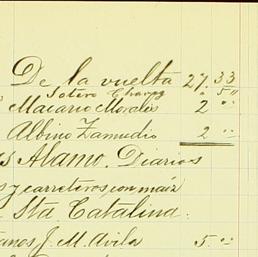 De la vuelta 27.33
Sotero Charez " 5"
Macario Morales 2 "
Albino Zamudio 2 "
Alamo. Diarios
y carreteros, con maiz
Sta Catalina.
J. M. Avila 5."